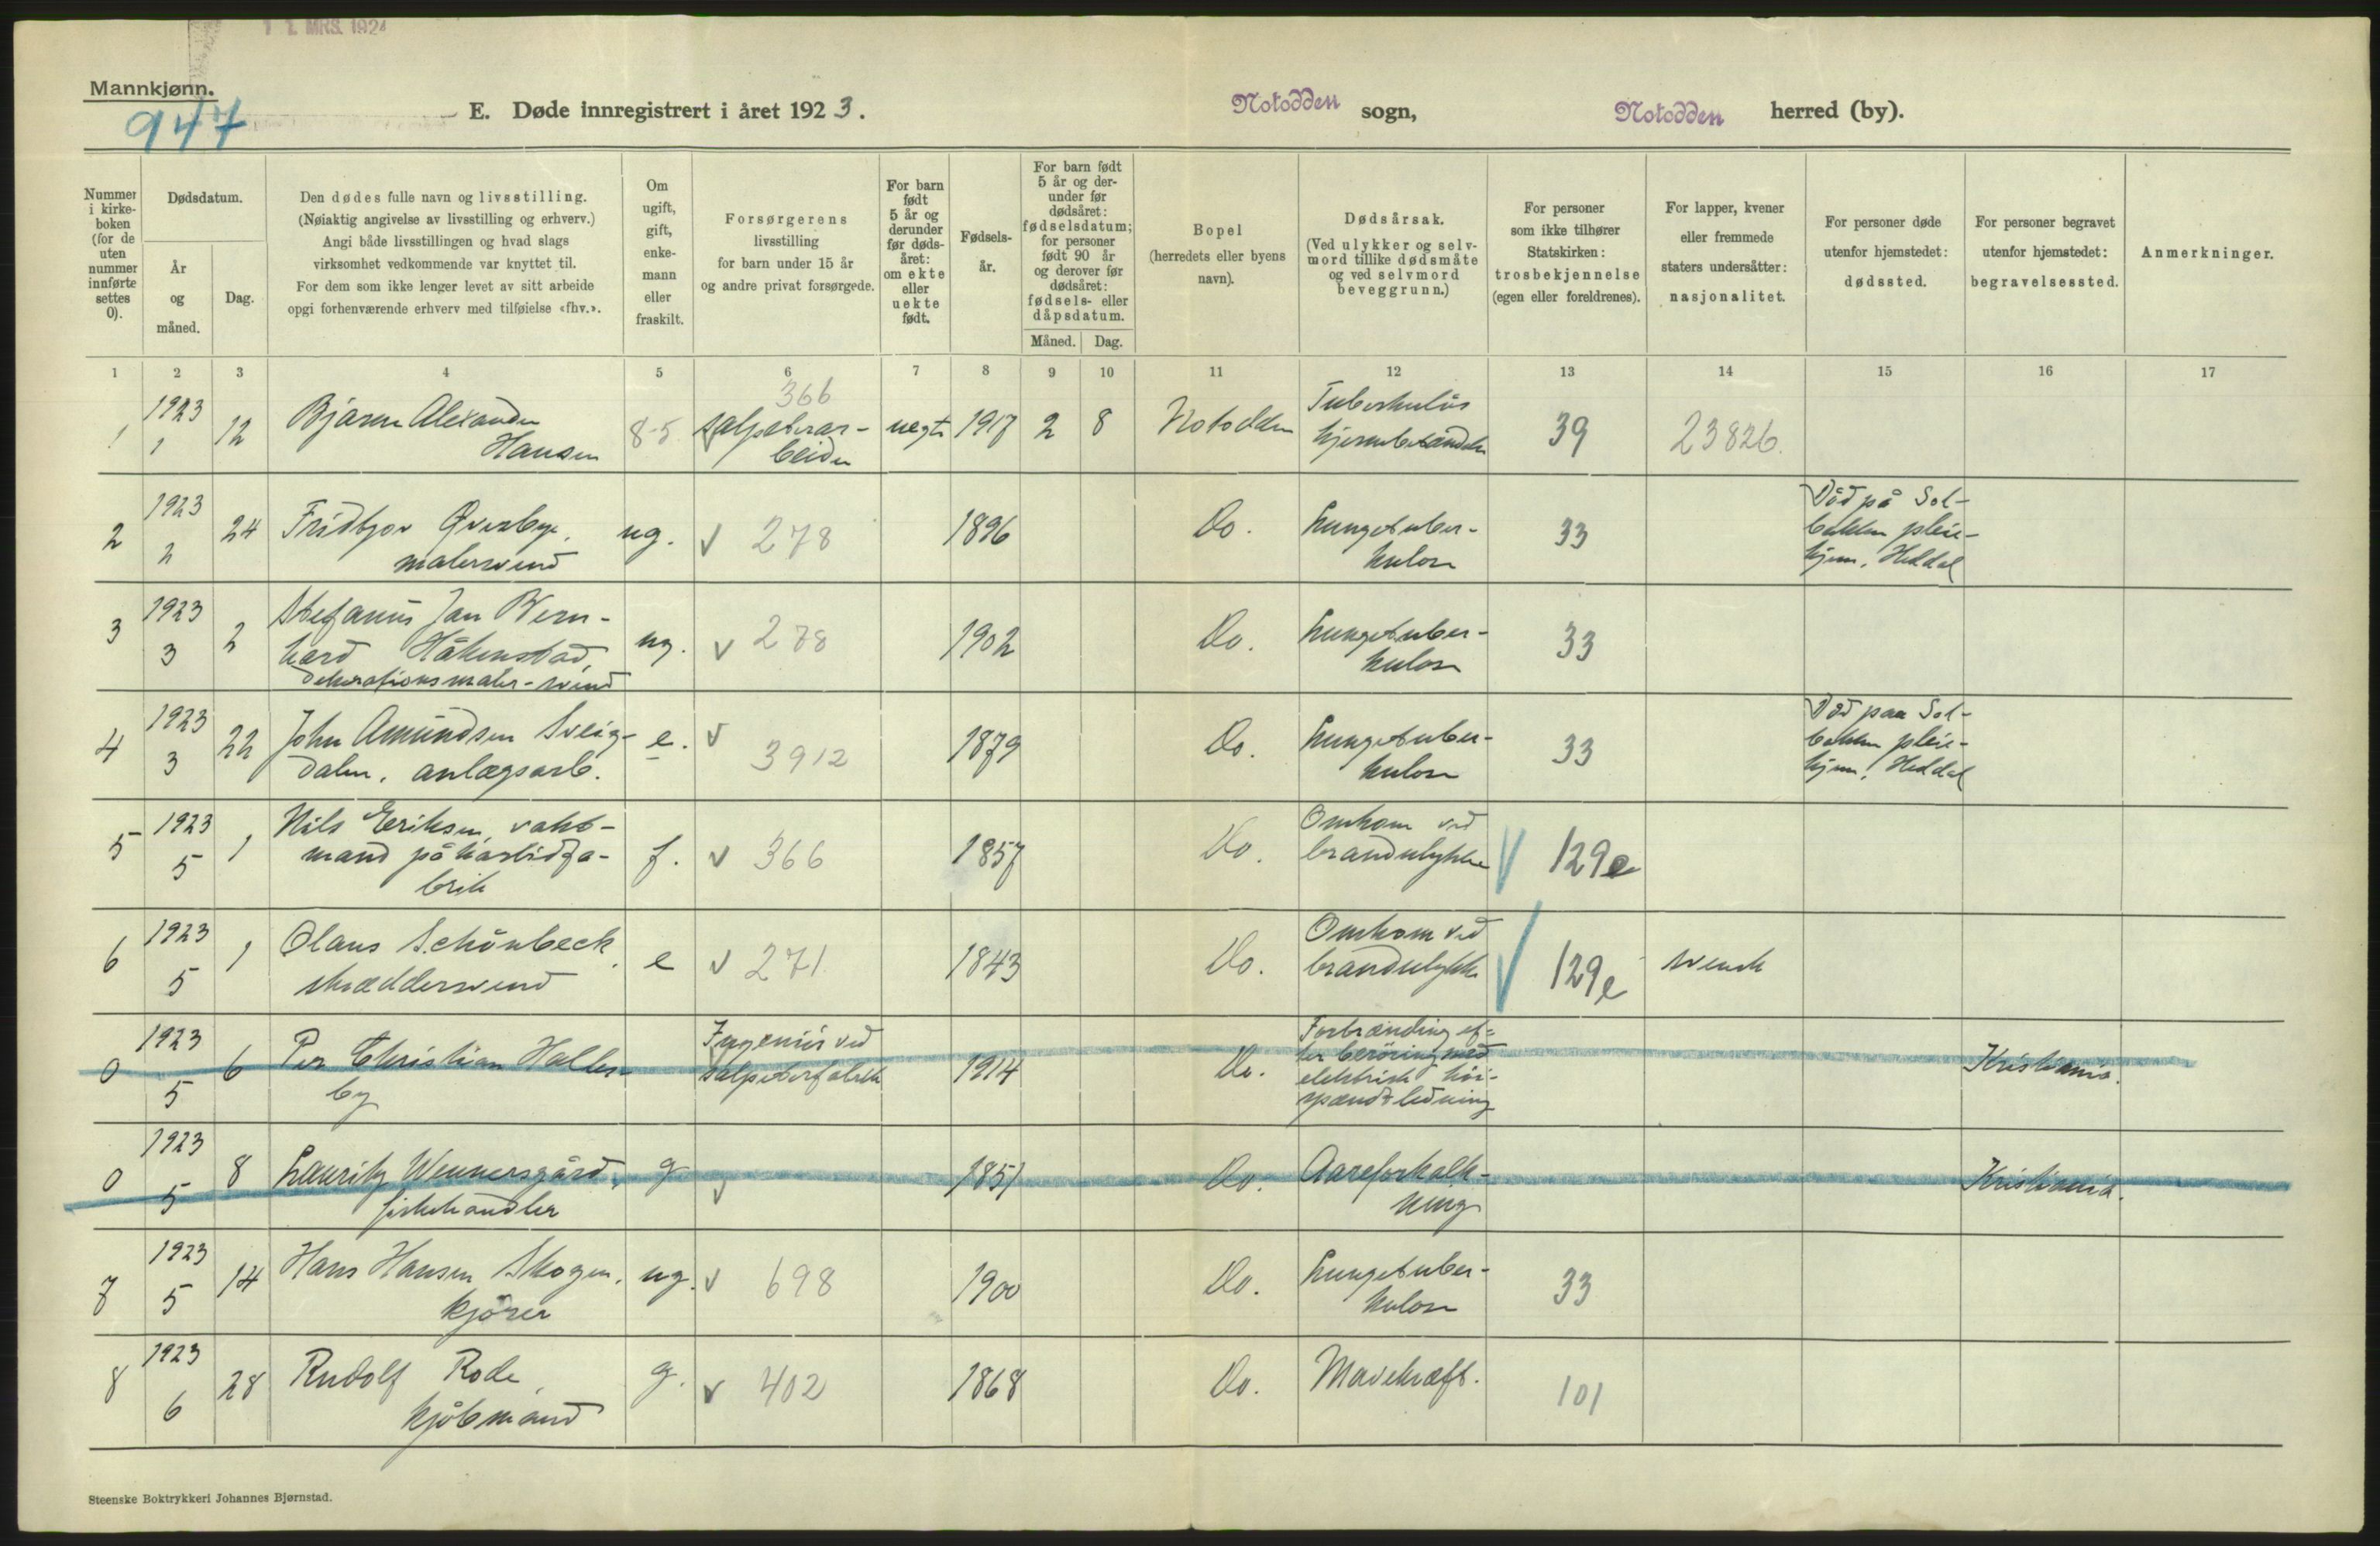 1 2. MRS. 1924
Mannkjønn.
947
E. Døde innregistrert i året 1923.
Notodden sogn,
Notodden herred (by).
Nummer i kirke- boken (for de uten nummer innførte settes 0).
Dødsdatum.
År og måned.
Dag.
Den dødes fulle navn og livsstilling.
(Nøiaktig angivelse av livsstilling og erhverv.)
Angi både livsstillingen og hvad slags
virksomhet vedkommende var knyttet til.
For dem som ikke lenger levet av sitt arbeide
opgi forhenværende erhverv med tilføielse «fhv.».
Om ugift, gift, enke- mann eller fraskilt.
Forsørgerens
livsstilling
for barn under 15 år
og andre privat forsørgede.
For barn født 5 år og derunder før døds- året: om ekte eller uekte født.
Fødsels- år.
For barn født 5 år og der- under før dødsåret: fødselsdatum; for personer født 90 år og derover før dødsåret: fødsels- eller dåpsdatum.
Måned.
Dag.
Bopel
(herredets eller byens
navn).
Dødsårsak.
(Ved ulykker og selv-
mord tillike dødsmåte
og ved selvmord
beveggrunn.)
For personer
som ikke tilhører
Statskirken:
trosbekjennelse
(egen eller foreldrenes).
For lapper, kvener
eller fremmede
staters undersåtter:
nasjonalitet.
For personer døde
utenfor hjemstedet:
dødssted.
For personer begravet
utenfor hjemstedet:
begravelsessted.
Anmerkninger.
1 2 3 4 5 6 7 8 9 10 11 12 13 14 15 16 17
1 1923 1 12 Bjarne Alexander
Hansen 8-5 366 salpeterar-
beider uegte 1917 2 8 Notodden Tuberkuløs
hjernebetændelse 39 23826.
2 1923 2 24 Fridtjov Øverbye,
malersvend ug. v 278 1896 Do. Lungetuber-
kulose 33 Død på Sol-
bakken pleie-
hjem, Heddal
3 1923 3 2 Stefanus Jan Bern-
hard Håkenstad,
dekorationsmaler-svend ug. v 278 1902 Do. Lungetuber-
kulose 33
4 1923 3 22 John Amundsen Sveig-
dalen, anlægsarb. e. v 3912 1879 Do. Lungetuber-
kulose 33 Død paa Sol-
bakken pleie-
hjem, Heddal
5 1923 5 1 Nils Eriksen, vakt-
mand på karbidfa-
brik f. v 366 1857 Do. Omkom ved
brandulykke v 129e
6 1923 5 1 Olaus Schönbeck,
skræddersvend e v 271 1843 Do. Omkom ved
brandulykke v 129e svensk
0 1923 5 6 Per Christian Halles-
by Ingeniør ved
salpeterfabrik 1914 Do. Forbrænding ef-
ter berøring med
elektrisk høi-
spændt ledning Kristiania.
0 1923 5 8 Lauritz Wennersgård,
fiskehandler g v 1851 Do. Aareforkalk-
ning Kristiania.
7 1923 5 14 Hans Hansen Skogen,
kjører ug. v 698 1900 Do. Lungetuber-
kulose 33
8 1923 6 28 Rudolf Rode,
kjøbmand g. v 402 1868 Do. Mavekræft. 101
Steenske Boktrykkeri Johannes Bjørnstad.